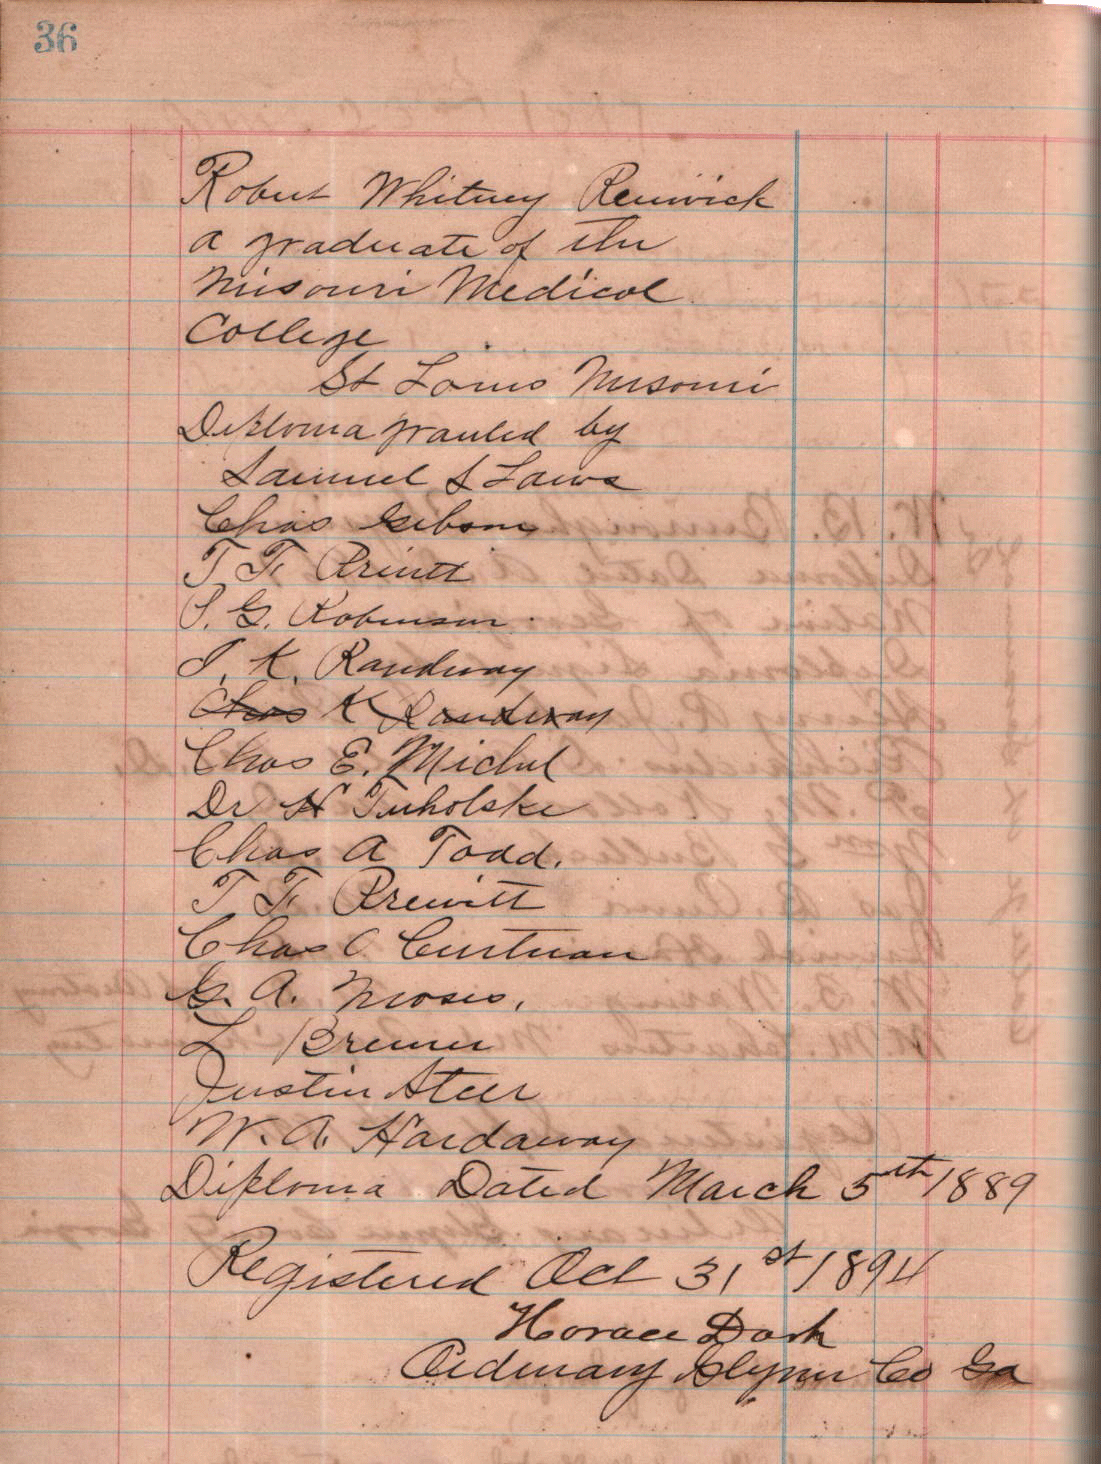 36
Robert Whitney Renwick
a graduate of the
Missouri Medical
College
St Louis Missouri
Diploma granted by
Samuel S Laws
Chas Gibson
T. F. Prewitt
P. G. Robinson
J. K. Bauduy
Chas K Bauduy
Chas E. Michel
Dr H Tuholske
Chas A Todd.
T F. Prewitt
Chas O Curtman
G. A. Moses.
L Bremer
Justin Steer
W. A. Hardaway
Diploma Dated March 5th 1889
Registered Oct 31st 1894
Horace Dart
Ordinary Glynn Co Ga